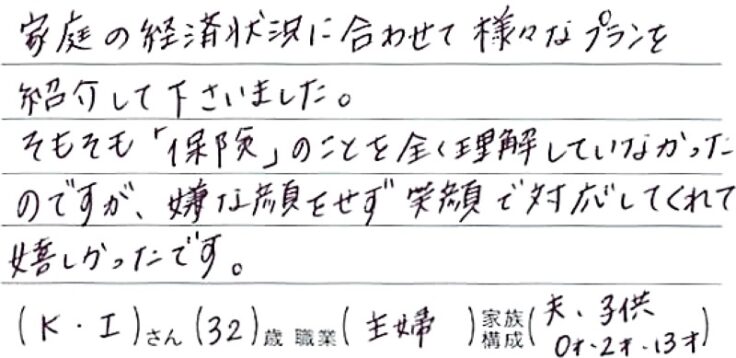 家庭の経済状況に合わせて様々なプランを
紹介して下さいました。
そもそも「保険」のことを全く理解していなかった
のですが、嫌な顔をせず笑顔で対応してくれて
嬉しかったです。
(K・I)さん(32)歳 職業(主婦)家族構成(夫、子供 0才・2才・13才)